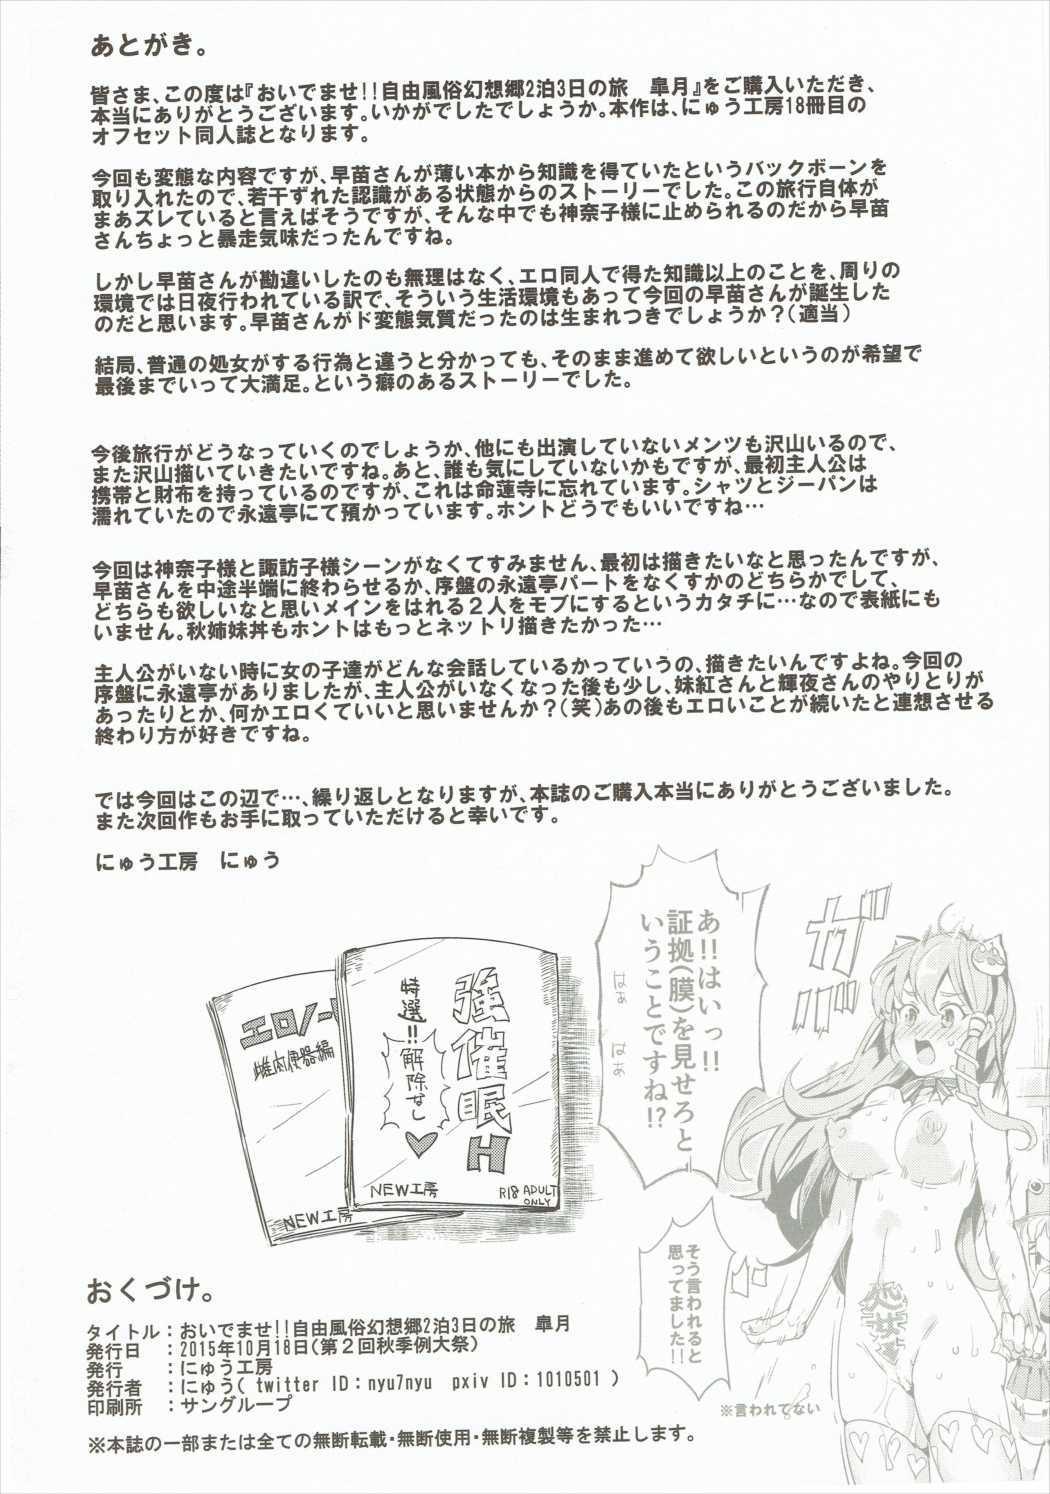 あとがき。
皆さま、この度は『おいでませ!!自由風俗幻想郷2泊3日の旅　皐月』をご購入いただき、
本当にありがとうございます。いかがでしたでしょうか。本作は、にゅう工房18冊目の
オフセット同人誌となります。
今回も変態な内容ですが、早苗さんが薄い本から知識を得ていたというバックボーンを
取り入れたので、若干ずれた認識がある状態からのストーリーでした。この旅行自体が
まあズレていると言えばそうですが、そんな中でも神奈子様に止められるのだから早苗
さんちょっと暴走気味だったんですね。
しかし早苗さんが勘違いしたのも無理はなく、エロ同人で得た知識以上のことを、周りの
環境では日夜行われている訳で、そういう生活環境もあって今回の早苗さんが誕生した
のだと思います。早苗さんがド変態気質だったのは生まれつきでしょうか？（適当）
結局、普通の処女がする行為と違うと分かっても、そのまま進めて欲しいというのが希望で
最後までいって大満足。という癖のあるストーリーでした。
今後旅行がどうなっていくのでしょうか、他にも出演していないメンツも沢山いるので、
また沢山描いていきたいですね。あと、誰も気にしていないかもですが、最初主人公は
携帯と財布を持っているのですが、これは命蓮寺に忘れています。シャツとジーパンは
濡れていたので永遠亭にて預かっています。ホントどうでもいいですね…
今回は神奈子様と諏訪子様シーンがなくてすみません、最初は描きたいなと思ったんですが、
早苗さんを中途半端に終わらせるか、序盤の永遠亭パートをなくすかのどちらかでして、
どちらも欲しいなと思いメインをはれる２人をモブにするというカタチに…なので表紙にも
いません。秋姉妹丼もホントはもっとネットリ描きたかった…
主人公がいない時に女の子達がどんな会話しているかっていうの、描きたいんですよね。今回の
序盤に永遠亭がありましたが、主人公がいなくなった後も少し、妹紅さんと輝夜さんのやりとりが
あったりとか、何かエロくていいと思いませんか？（笑）あの後もエロいことが続いたと連想させる
終わり方が好きですね。
では今回はこの辺で…、繰り返しとなりますが、本誌のご購入本当にありがとうございました。
また次回作もお手に取っていただけると幸いです。
にゅう工房　にゅう
ガバッ
あ!!はいっ!!
証拠(膜)を見せろと
いうことですね!?
はぁ
はぁ
強催眠H
特選!!解除なし♥
NEW工房
R18 ADULT
ONLY
エロノー
雌肉便器編
NEW工房
そう言われると
思ってました!!
処女
※言われてない
おくづけ。
タイトル：おいでませ!!自由風俗幻想郷2泊3日の旅　皐月
発行日　：2015年10月18日（第２回秋季例大祭）
発行　　：にゅう工房
発行者　：にゅう( twitter ID：nyu7nyu　pxiv ID：1010501 )
印刷所　：サングループ
※本誌の一部または全ての無断転載・無断使用・無断複製等を禁止します。